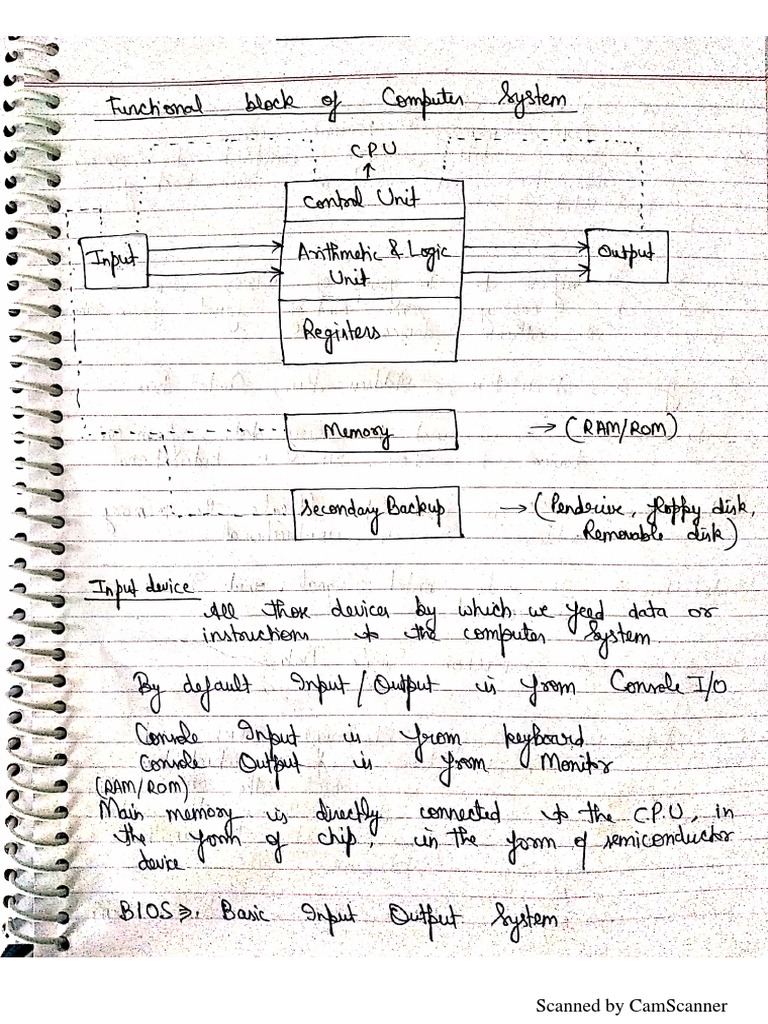 Functional block of Computer System
C.P.U
Control Unit
Input
Arithmetic & Logic
Unit
Output
Registers
Memory → (RAM/ROM)
Secondary Backup → (Pendrive, floppy disk,
Removable disk)
Input device
All those devices by which we feed data or
instructions to the computer system
By default Input/Output is from Console I/O
Console Input is from keyboard
Console Output is from Monitor
(RAM/ROM)
Main memory is directly connected to the C.P.U, in
the form of chip, in the form of semiconductor
device
BIOS ⇒ Basic Input Output System
Scanned by CamScanner